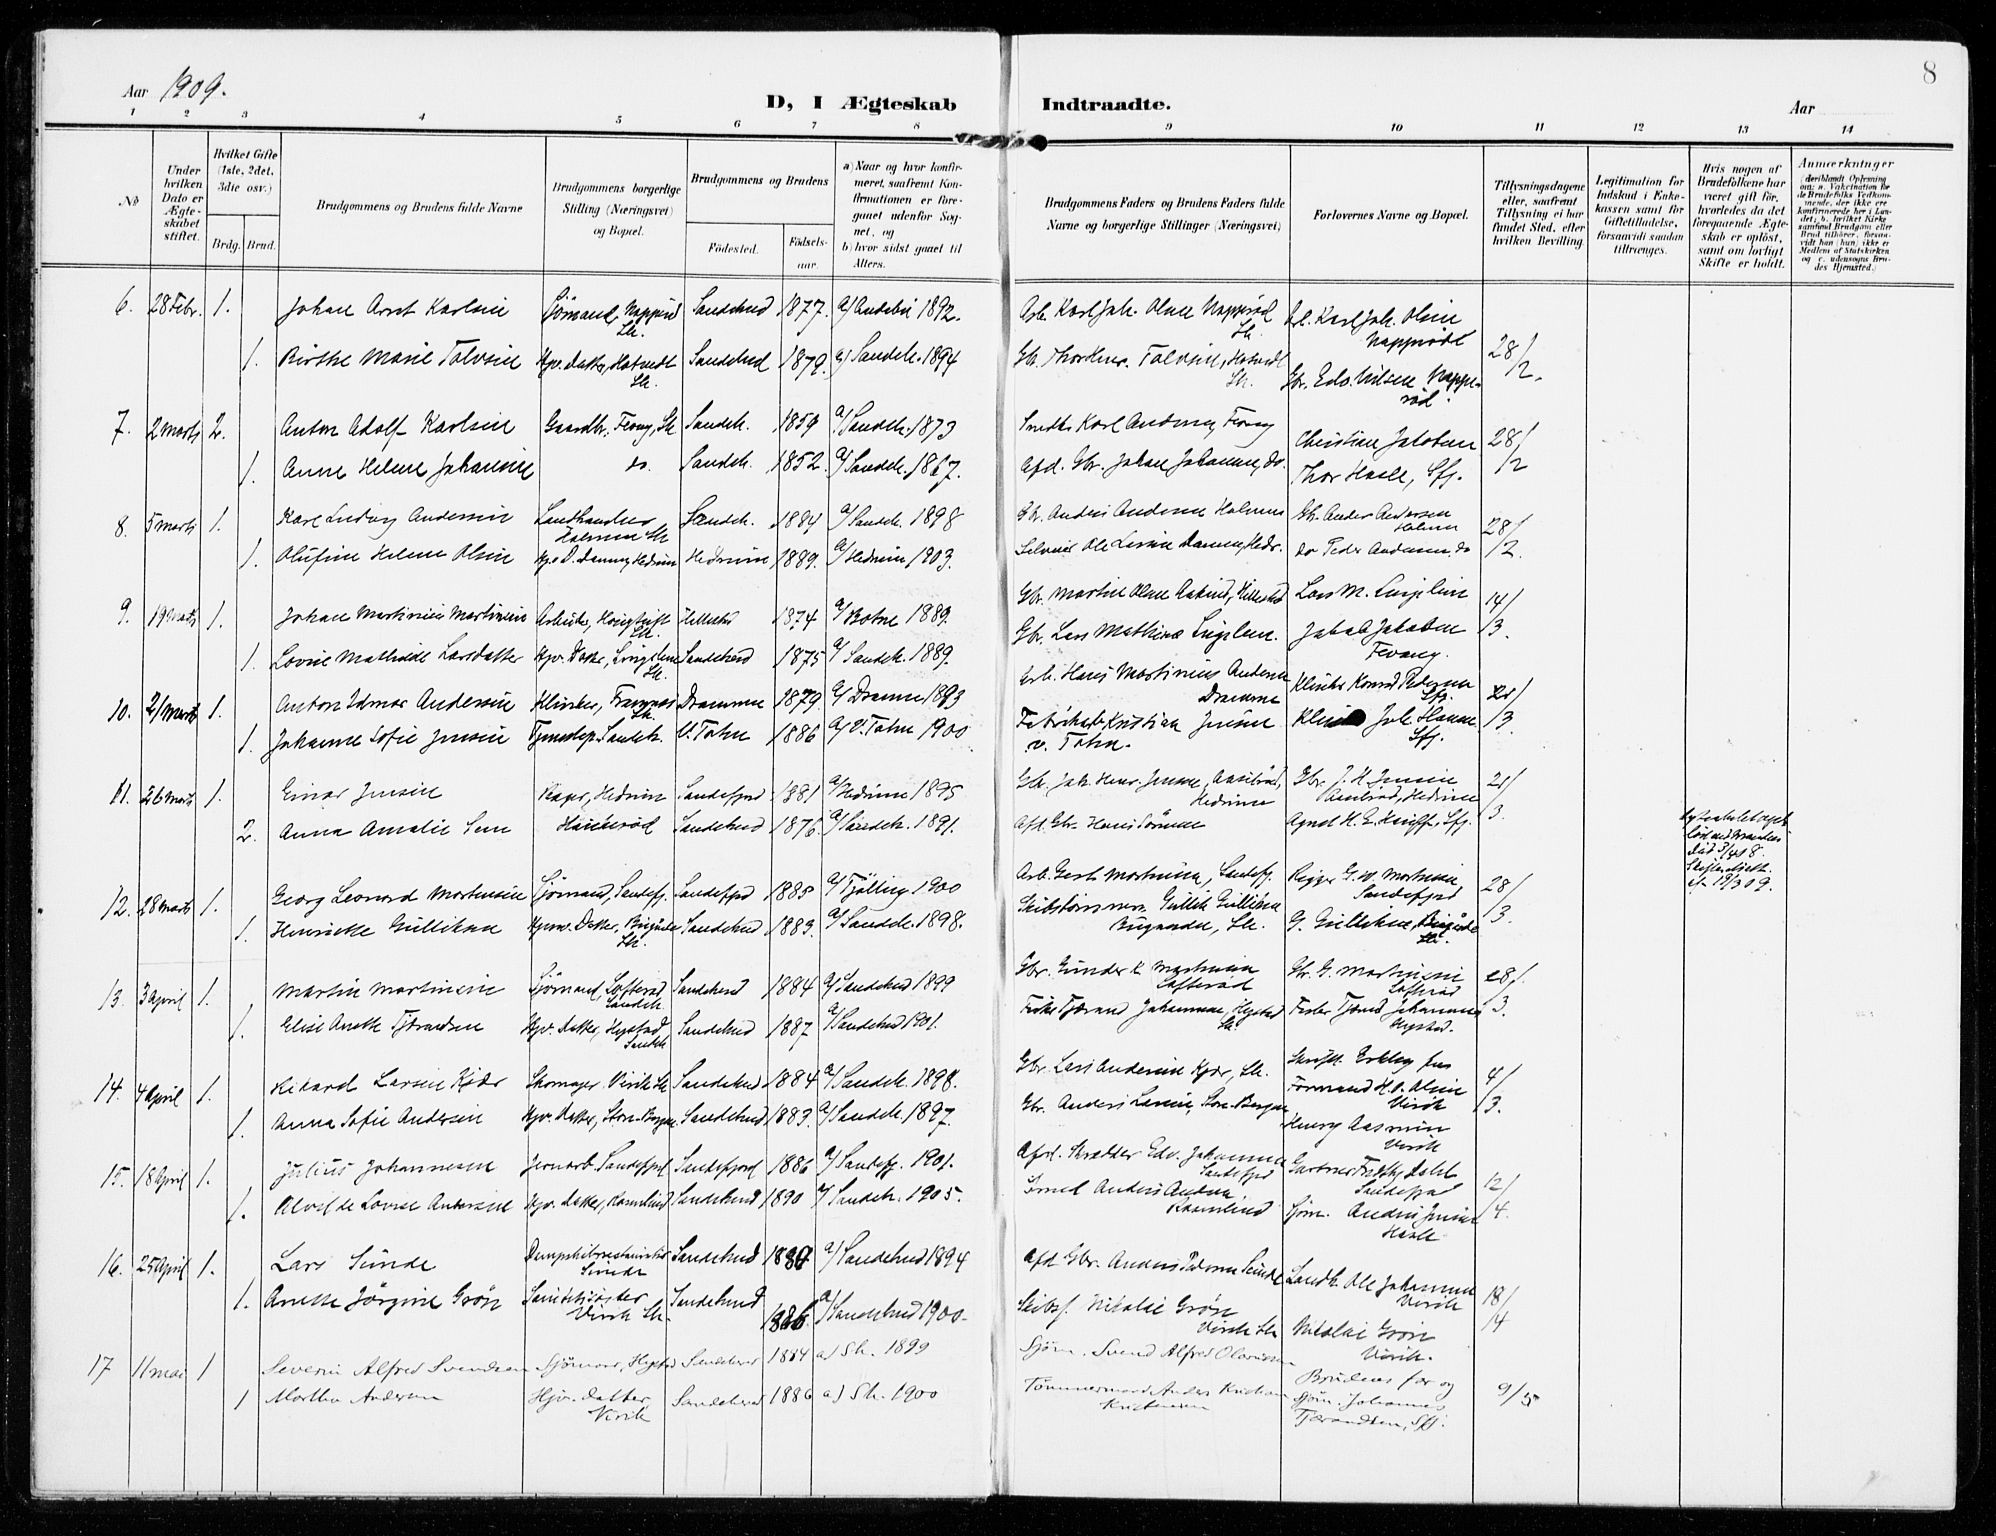 Aar 1909.
D, I Ægteskab Indtraadte.
Aar
8
1 2 3 4 5 6 7 8 9 10 11 12 13 14
No
Under hvilken Dato er Ægteskabet stiftet.
Hvilket Gifte (1ste, 2det, 3die osv.)
Brdg. Brud.
Brudgommens og Brudens fulde Navne
Brudgommens borgerlige Stilling (Næringsvei) og Bopæl.
Brudgommens og Brudens
Fødested. Fødselsaar.
a) Naar og hvor konfirmeret, saafremt Konfirmationen er foregaaet udenfor Sognet, og
b) hvor sidst gaaet til Alters.
Brudgommens Faders og Brudens Faders fulde Navne og borgerlige Stillinger (Næringsvei)
Forlovernes Navne og Bopæl.
Tillysningsdagene eller, saafremt Tillysning ei har fundet Sted, efter hvilken Bevilling.
Legitimation for Indskud i Enkekassen samt for Giftetilladelse, forsaavidt saadan tiltrænges.
Hvis nogen af Brudefolkene har været gift før, hvorledes da det foregaaende Ægteskab er opløst, samt om lovligt Skifte er holdt.
Anmærkninger (deriblandt Oplysning om: a. Vaccination for de Brudefolks Vedkommende, der ikke ere konfirmerede her i Landet; b. hvilket Kirkesamfund Brudgom eller Brud tilhører, forsaavidt han (hun) ikke er Medlem af Statskirken og c. udensogns Brudes Hjemsted.)
6. 28 Febr. 1. Johan Arnt Karlsen Sjømand, Napperød Sh. Sandeherred 1877. a/ Andebu 1892. Arb. Karl Joh. Olsen Napperød Sh. Karl Joh. Olsen Napperød
1. Birthe Marie Tolvsen Hjv. Datter, Hotvedt Sh. Sandeherred 1879. a/ Sandeh. 1894 Gbr. Tolvsen, Hotvedt Sh. Gbr. Edv. Nilsen Napperød. 28/2.
7. 2 marts 2. Anton Adolf Karlsen Gaardbr. Fevang, Sh Sandeh. 1859 a/ Sandeh. 1873 Smed Karl Andersen, Fevang Christian Jakobsen 28/2
1. Anne Helene Johansen do. Sandeh. 1852. a/ Sandeh. 1867. Afd. Gbr. Johan Johannsen, do. Thor Hasle, Sfj.
8. 5 marts 1. Karl Ludvig Andersen Landhandler Holmen Sh Sandeh. 1884 a/ Sandeh. 1898 Gbr. Anders Andersen Holmen Gbr. Anders Andersen Holmen 28/2.
1. Olufine Helene Olsen Hjv. D. Hedrum Hedrum 1889. a/ Hedrum 1903. Selveier Ole Hedr. do Peder Andersen, do
9. 19 marts 1. Johan Martinius Martinsen Arbeider, Sh. Hillestad 1874 a/ Botne 1889. Gbr. Martin Olsen Hillestad Lars M. Lingelem 14/3.
1. Lovise Mathilde Larsdatter Hjv. Datter, Lingelem Sh. Sandeherred 1875 a/ Sandeh. 1889. Gbr. Lars Mathias Lingelem. Jakob Jakobsen Fevang.
10. 21 marts 1. Anton Idmar Andersen Klinker, Framnæs Sh. Drammen 1879 a/ Drammen 1893 Arb. Hans Martinius Andersen Drammen Klinker Konrad Pedersen Sfj. 21/3
1. Johanne Sofie Jensen Tjenestep. Sandeh. V. Toten 1886 a/ V. Toten 1900 Kristian Jensen V. Toten. Joh. Hansen Sfj.
11. 26 marts 1. Einar Jensen Bager, Hedrum Sandefjord 1881 a/ Hedrum 1895 Gbr. Joh. Henr. Jensen, Hedrum Gbr. J. H. Jensen Hedrum 21/3.
2. Anna Amalie Haukerød Sandeherred 1876 a/ Sandeh. 1891. Afd. Gbr. Hans Sørensen Agnet H. E. Sfj.
Død 3/4 08. 19/3 09.
12. 28 marts 1. Georg Leonard Martinsen Sjømand, Sandefj. Sandefjord 1885 a/ Tjølling 1900 Arb. Gert Martinsen, Sandefj. Rigger G. W. Martinsen Sandefjord 28/3.
1. Henrikke Gulliksen Hjemv. Datter, Bugaarden Sh. Sandeherred 1883. a/ Sandeh. 1898. Skibstømmerm. Gullik Gulliksen Bugaarden, Sh. G. Gulliksen, Sh.
13. 3 April 1. Martin Martinsen Sjømand, Lofterød Sandeh Sandeherred 1884 a/ Sandeherred 1899 Gbr. Gunder K. Martinsen Lofterød Gbr. G. Martinsen Lofterød 28/3.
1. Elise Anette Tjærandsen Hjv. Datter, Hystad Sandeh Sandeherred 1887 a/ Sandeherred 1901. Fisker Tjærand Johannsen, Hystad Sh. Fisker Tjærand Johannsen Hystad.
14. 4 April 1. Rikard Larsen Kjær Skomager Virik Sh Sandeherred 1884 a/ Sandeh. 1898. Gbr. Lars Andersen Kjær, Sh. Formand H. O. Olsen Virik 4/3.
1. Anna Sofie Andersen Hjv. Datter, Store Bergan Sandeherred 1883. a/ Sandeh. 1897. Gbr. Anders Larsen, Store Bergan Henry Aasmun Virik
15. 18 April 1. Julius Johannesen Jernarb. Sandefjord Sandefjord 1886 a/ Sandefj. 1901. Afd. Skrædder Edv. Johannesen Sandefjord Gartner Dahl Sandefjord 12/4.
1. Alvilde Lovise Andersen Hjv. Datter, Ramelind Sandeherred 1890 a/ Sandeh. 1905. Anders Andersen Ramelind Sjøm. Anders Jensen Hasle
16. 25 April 1. Lars Sunde Dampskibsrestauratør Sunde Sandeherred a/ Sandeherred 1894 Afd. Gbr. Anders Pedersen Sunde Landh. Ole Johannsen Virik 18/4
1. Anette Jørgine Grøn Virik Sh. Sandeherred 1886. a/ Sandeherred 1900. Skibsf. Nikolai Grøn Virik Sh Nikolai Grøn Virik.
17 11 mai 1 Severin Alfred Svendsen Sjømand, Hystad Sandeherred 1884 a) Sh. 1899 Sjøm. Svend Alfred Olavesen Brudens far og
1 Martha Andersen Hjv. datter, Virik Sandeherred 1886 a) Sh. 1900 Tømmermand Anders Kristian Kristensen Sjøm. Johannes Tjærandsen, Sfj. 9/5